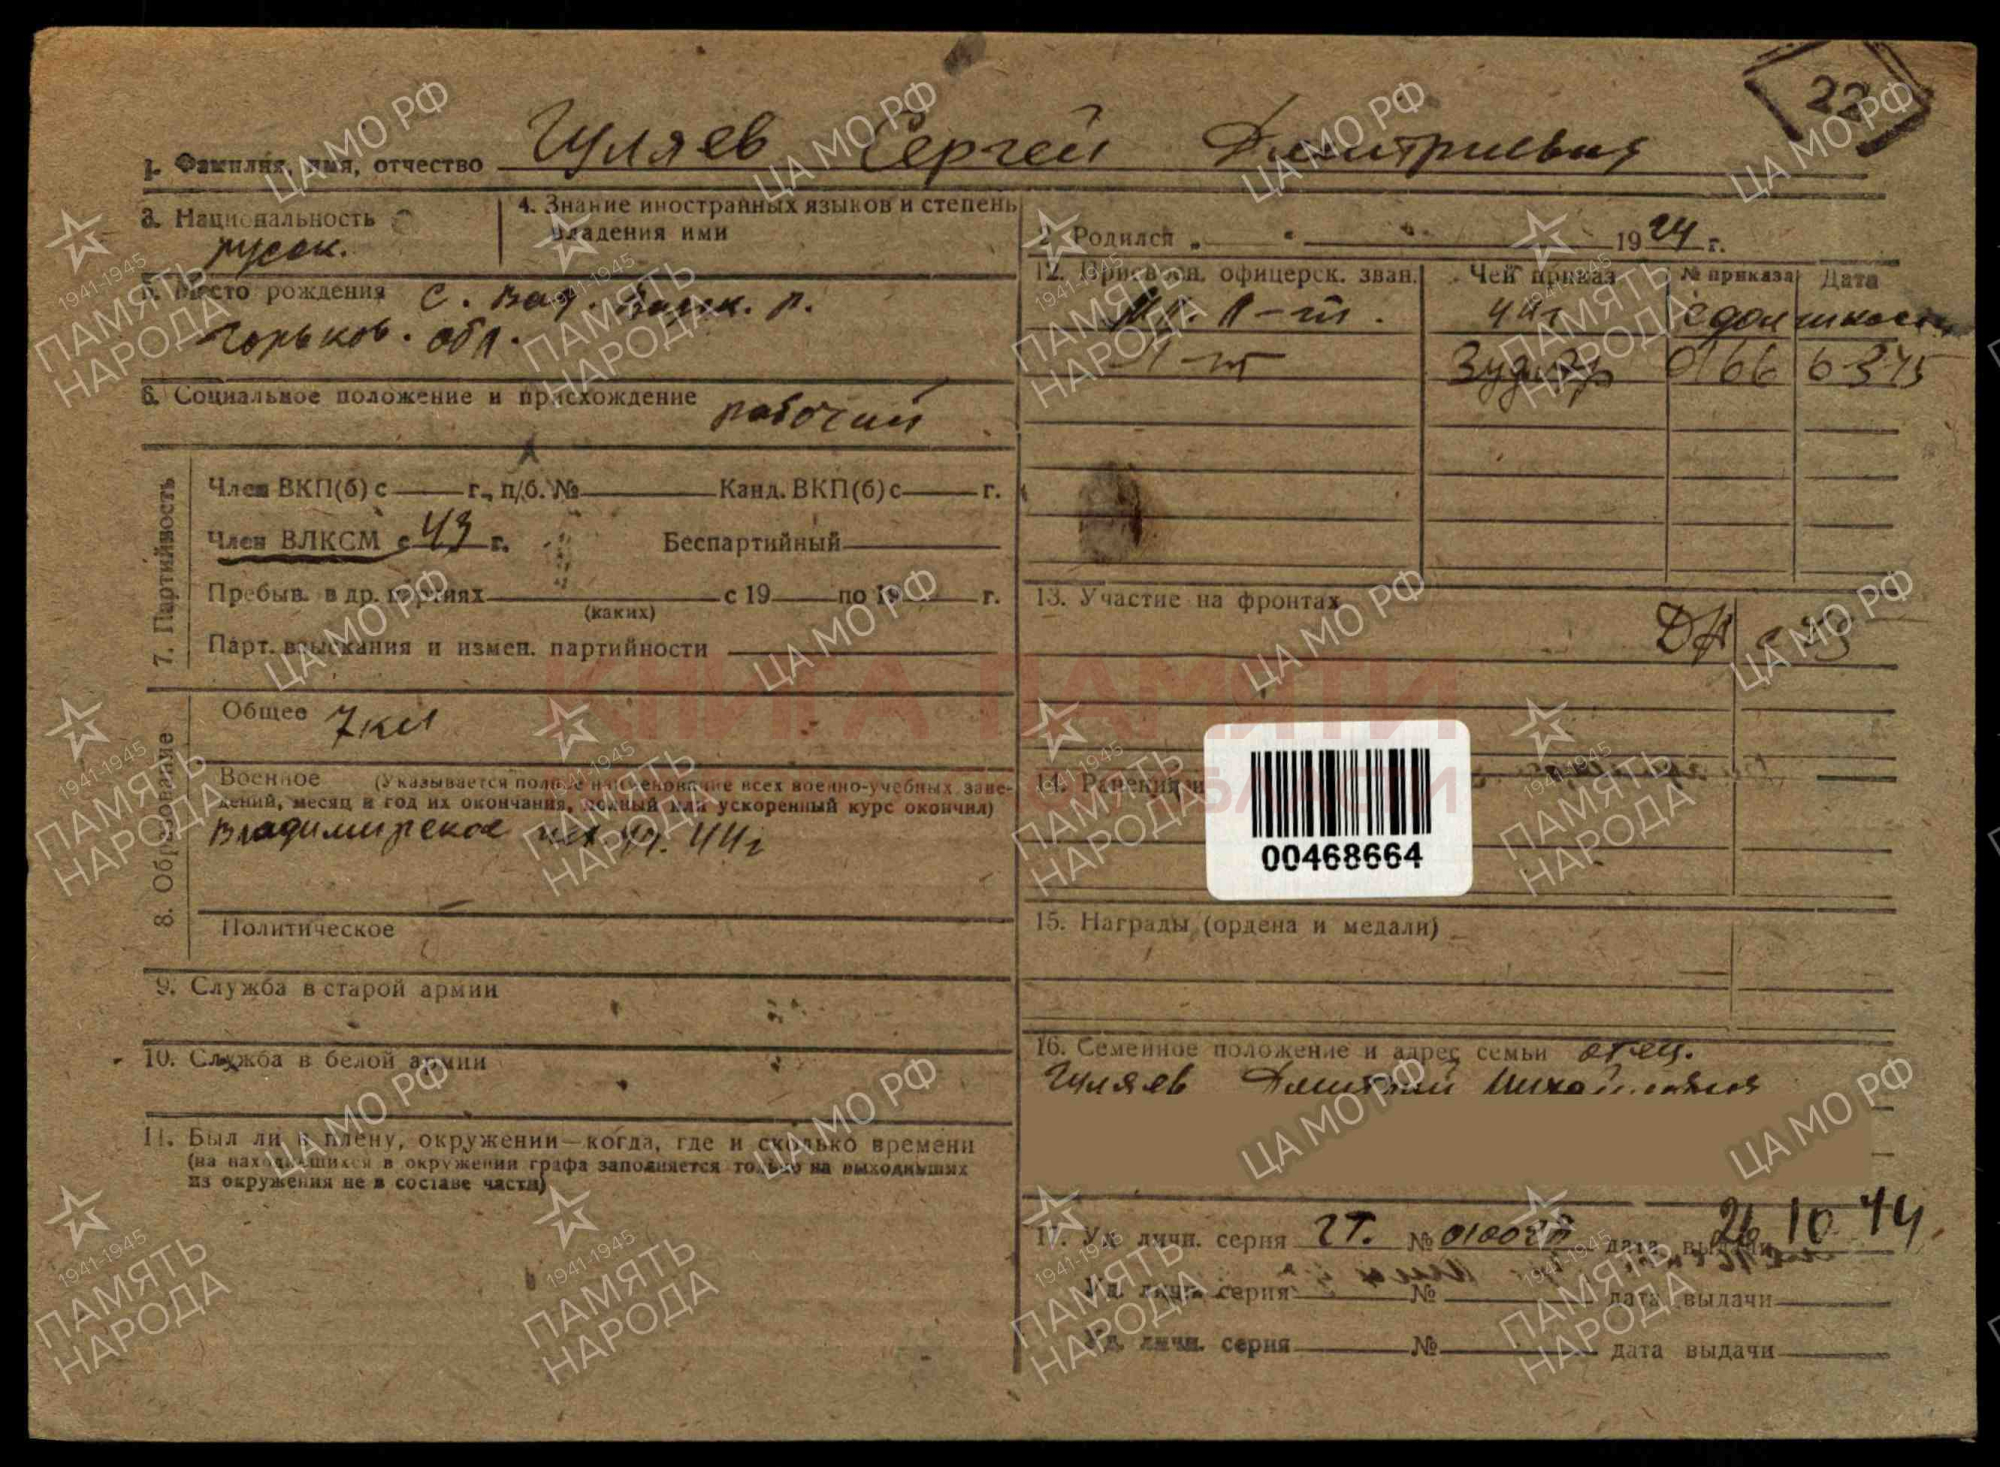 22
1. Фамилия, имя, отчество Гуляев Сергей Дмитриевич
3. Национальность русск.
4. Знание иностранных языков и степень владения ими
2. Родился „ “ 1924 г.
5. Место рождения с. Вад. Вадск. р.
Горьков. обл.
6. Социальное положение и присхождение рабочий
12. Присвоен. офицерск. зван. Чей приказ № приказа Дата
Мл. л-т. с должности
Л-т 3 уд. 0166 6 3 45
7. Партийность
Член ВКП(б) с г., п/б. № Канд. ВКП(б) с г.
Член ВЛКСМ с 43 г. Беспартийный
Пребыв. в др. партиях с 19 по 19 г.
(каких)
Парт. взыскания и измен. партийности
13. Участие на фронтах
8. Образование
Общее 7 кл
Военное (Указывается полное наименование всех военно-учебных заве-
дений, месяц и год их окончания, полный или ускоренный курс окончил)
Владимирское пех. уч. 44г
Политическое
14. Ранения и
00468664
15. Награды (ордена и медали)
9. Служба в старой армии
10. Служба в белой армии
11. Был ли в плену, окружении—когда, где и сколько времени
(на находившихся в окружении графа заполняется только на выходивших
из окружения не в составе части)
16. Семейное положение и адрес семьи отец.
Гуляев Дмитрий Михайлович
17. Уд. личн. серия ГТ. № дата выдачи 26 10 44
Уд. личн. серия № дата выдачи
Уд. личн. серия № дата выдачи
КНИГА ПАМЯТИ
ОБЛАСТИ
ЦА МО РФ
1941-1945
ПАМЯТЬ
НАРОДА